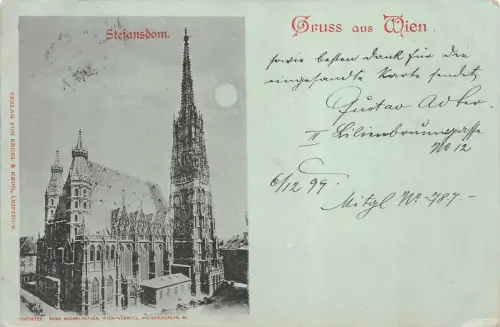 Stefansdom.
Gruss aus Wien
sowie besten Dank für die
eingesandte Karte sendet
Gustav Adler
II Lilienbrunngasse
No 12
6/12 99.
Mitgl No 787.-
VERLAG VON REGEL & KRUG, LEIPZIG-R.